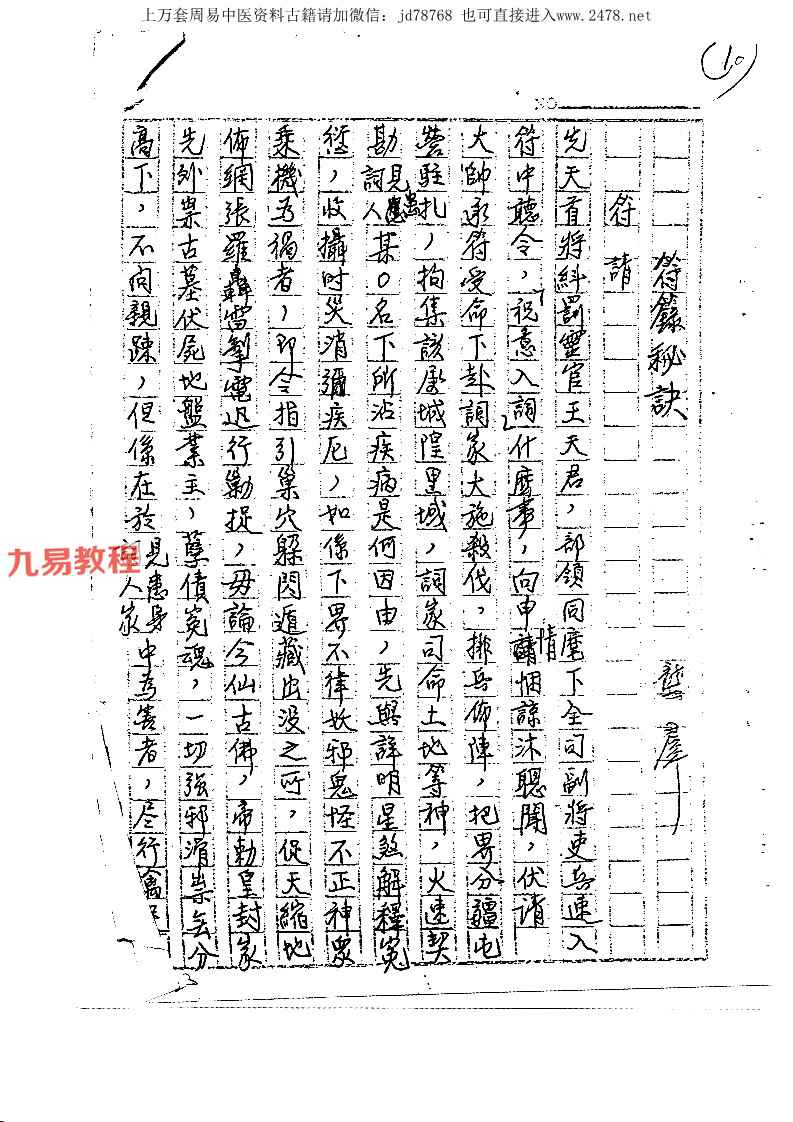 上万套周易中医资料古籍请加微信：jd78768 也可直接进入www.2478.net
(10)
NO
符籙秘訣
龔羣
符請
先天首將糾罰靈官王天君，部領同麾下全司副將吏兵速入
符中聽令，祝意入詞什麼事，向申請情悃諒沐聰聞，伏请
大帥承符受命下赴詞家大施殺伐，排兵佈陣，把界分疆屯
营駐扎，拘集該處城隍里域，詞家司命土地等神，火速契
勘詞見患人某〇名下所沾疾病是何因由，先與詳明星煞解釋冤
愆，收攝时災消彌疾厄，如係下界不律妖邪鬼怪不正神眾
乘機为禍者，即令指引巢穴躲閃遁藏出没之所，促天縮地
佈網張羅轟雷掣電迅行勦捉，毋論今仙古佛，帝勅皇封家
先外祟古墓伏屍地盤業主，孽債冤魂，一切強邪滑祟無分
高下，不问親踈，但係在於見患身人家中為害者，尽行擒
九易教程